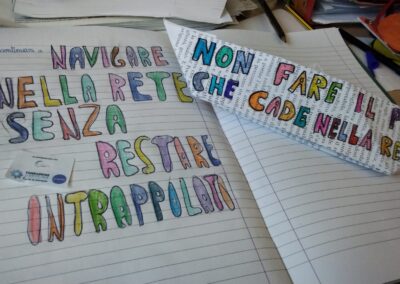 NAVIGARE
NELLA RETE
SENZA
RESTARE
INTRAPPILATI
NON FARE IL P
CHE CADE NELLA RE